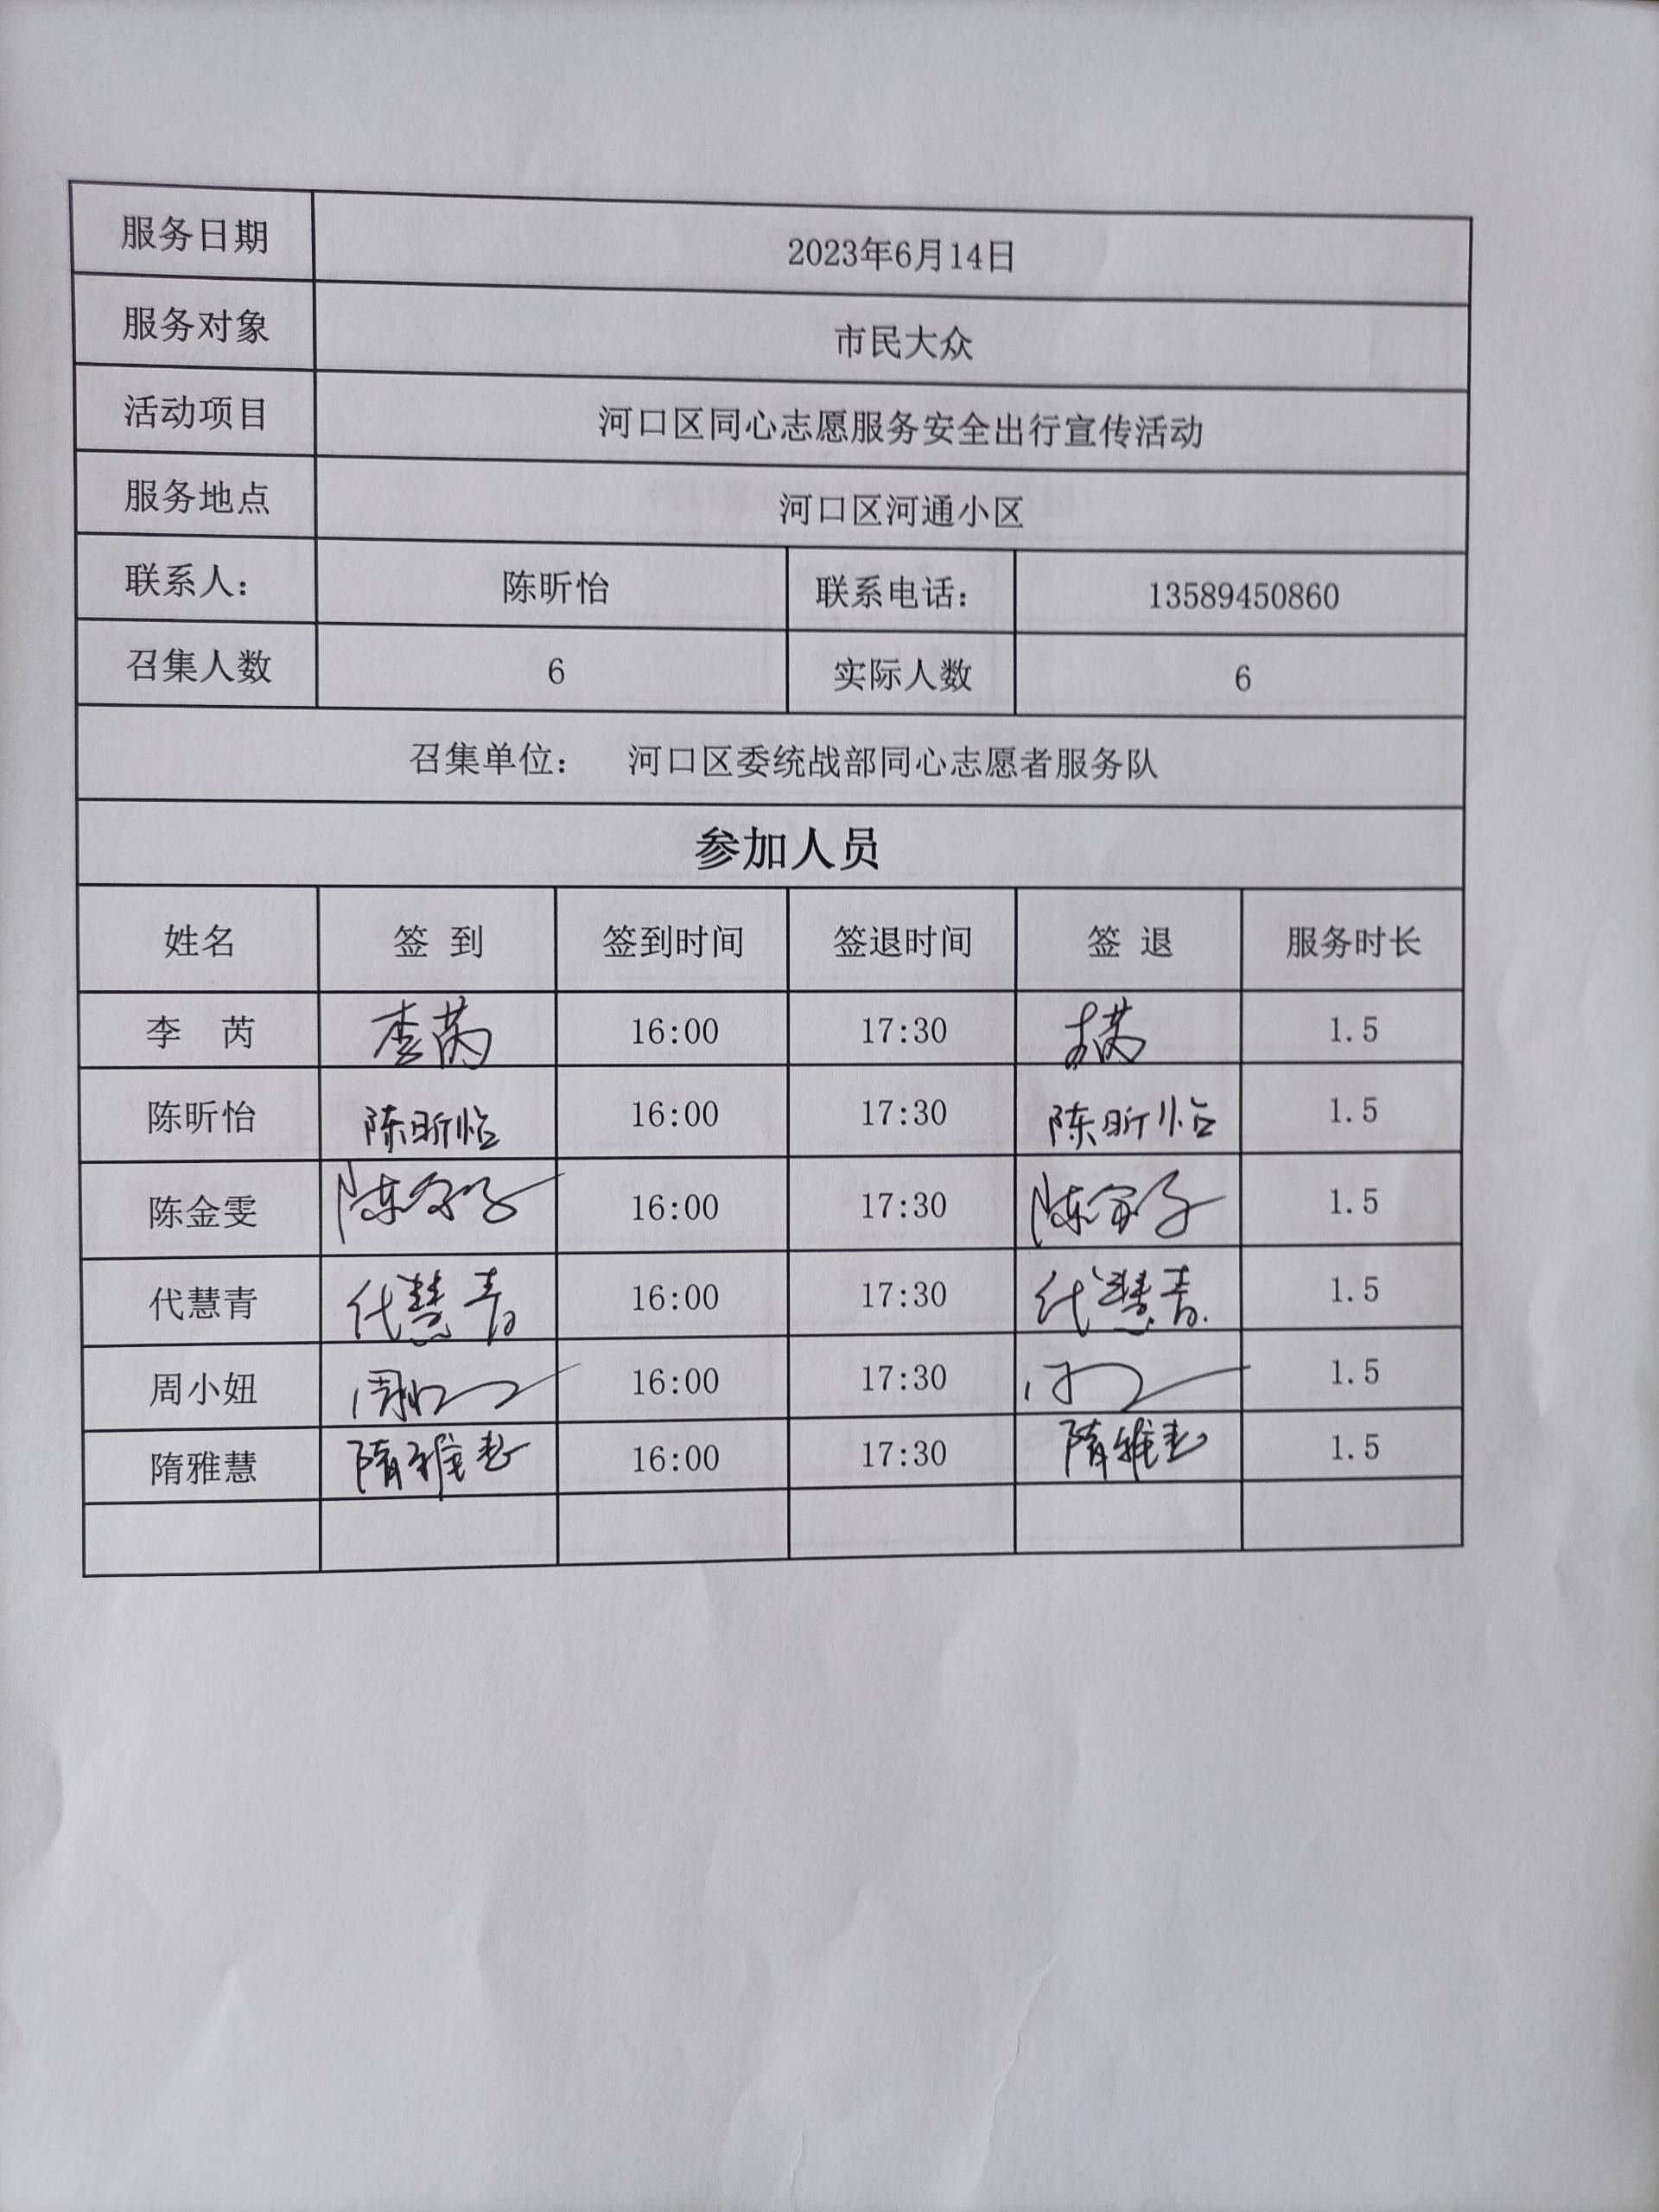 服务日期 2023年6月14日
服务对象 市民大众
活动项目 河口区同心志愿服务安全出行宣传活动
服务地点 河口区河通小区
联系人： 陈昕怡 联系电话： 13589450860
召集人数 6 实际人数 6
召集单位： 河口区委统战部同心志愿者服务队
参加人员
姓名 签 到 签到时间 签退时间 签 退 服务时长
李 芮 李芮 16:00 17:30 李芮 1.5
陈昕怡 陈昕怡 16:00 17:30 陈昕怡 1.5
陈金雯 16:00 17:30 1.5
代慧青 代慧青 16:00 17:30 代慧青 1.5
周小妞 16:00 17:30 1.5
隋雅慧 隋雅慧 16:00 17:30 隋雅慧 1.5